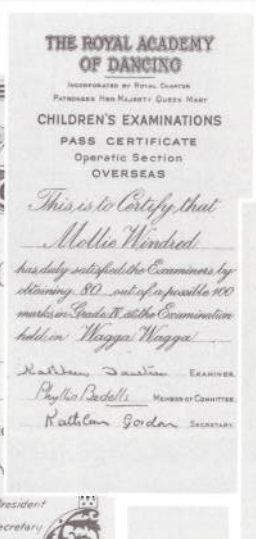 THE ROYAL ACADEMY
OF DANCING
INCORPORATED BY ROYAL CHARTER
PATRONESS HER MAJESTY QUEEN MARY
CHILDREN'S EXAMINATIONS
PASS CERTIFICATE
Operatic Section
OVERSEAS
This is to Certify that
Mollie Windred
has duly satisfied the Examiners by
obtaining 80 out of a possible 100
marks in Grade IV at the Examination
held in Wagga Wagga
Kathleen EXAMINER.
Phyllis Bedells MEMBER OF COMMITTEE.
Kathleen Gordon SECRETARY.
resident
ecretary